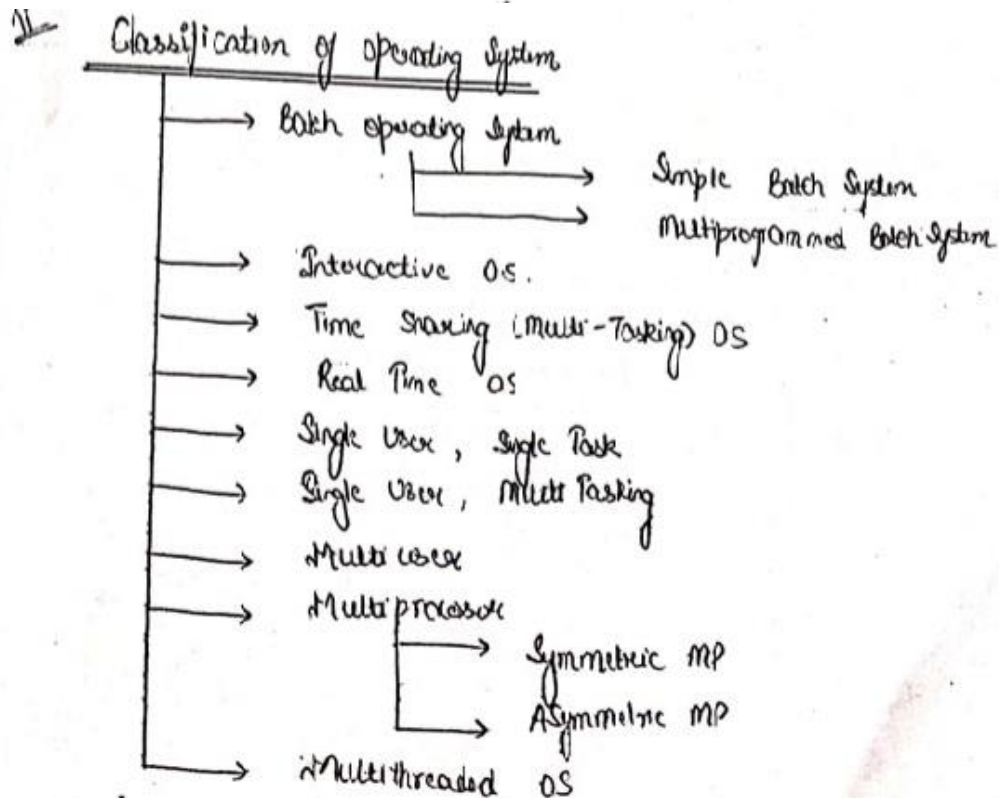 1
Classification of operating System
Batch operating System
Simple Batch System
Multiprogrammed Batch System
Interactive OS.
Time Sharing (Multi-Tasking) OS
Real Time OS
Single User, Single Task
Single User, Multi Tasking
Multi user
Multiprocessor
Symmetric MP
ASymmetric MP
Multithreaded OS